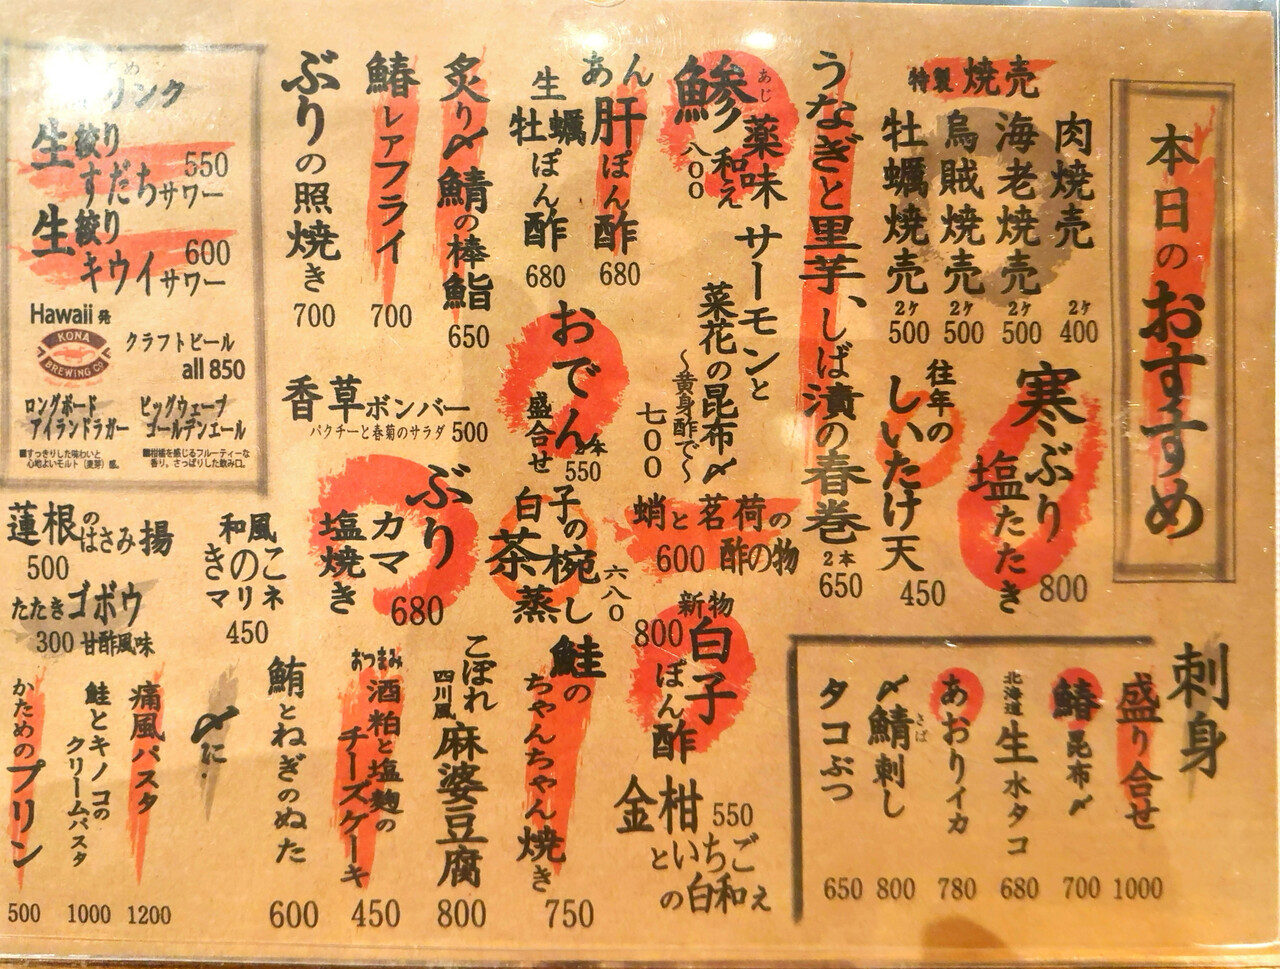 本日のおすすめ
特製 焼売
肉焼売 2ケ 400
海老焼売 2ケ 500
烏賊焼売 2ケ 500
牡蠣焼売 2ケ 500
寒ぶり
塩たたき 800
往年の
しいたけ天 450
うなぎと里芋、しば漬の春巻 2本 650
サーモンと
菜花の昆布〆
〜黄身酢で〜
七〇〇
鯵 あじ
薬味
和え
八〇〇
蛸と茗荷の
酢の物 600
新物
白子
ぽん酢 800
金柑
といちご
の白和え 550
あん肝ぽん酢 680
生牡蠣ぽん酢 680
おでん
盛合せ 550
白子の
茶椀蒸し 六八〇
鮭の
ちゃんちゃん焼き 750
炙り〆鯖の棒鮨 650
鰆レアフライ 700
ぶりの照焼き 700
香草ボンバー
パクチーと春菊のサラダ 500
ぶり
カマ
塩焼き 680
こぼれ
四川風 麻婆豆腐 800
おつまみ
酒粕と塩麹の
チーズケーキ 450
鮪とねぎのぬた 600
生絞り
すだちサワー 550
生絞り
キウイサワー 600
Hawaii発
KONA
BREWING CO
クラフトビール
all 850
ロングボード
アイランドラガー
■すっきりした味わいと
心地よいモルト（麦芽）感。
ビッグウェーブ
ゴールデンエール
■柑橘を感じるフルーティーな
香り。さっぱりした飲み口。
蓮根の
はさみ揚 500
たたきゴボウ
300 甘酢風味
和風
きのこ
マリネ
450
〆に.
痛風パスタ 1200
鮭とキノコの
クリームパスタ 1000
かためのプリン 500
刺身
盛り合せ 1000
鰆昆布〆 700
北海道 生水タコ 680
あおりイカ 780
〆鯖刺し さば 800
タコぶつ 650